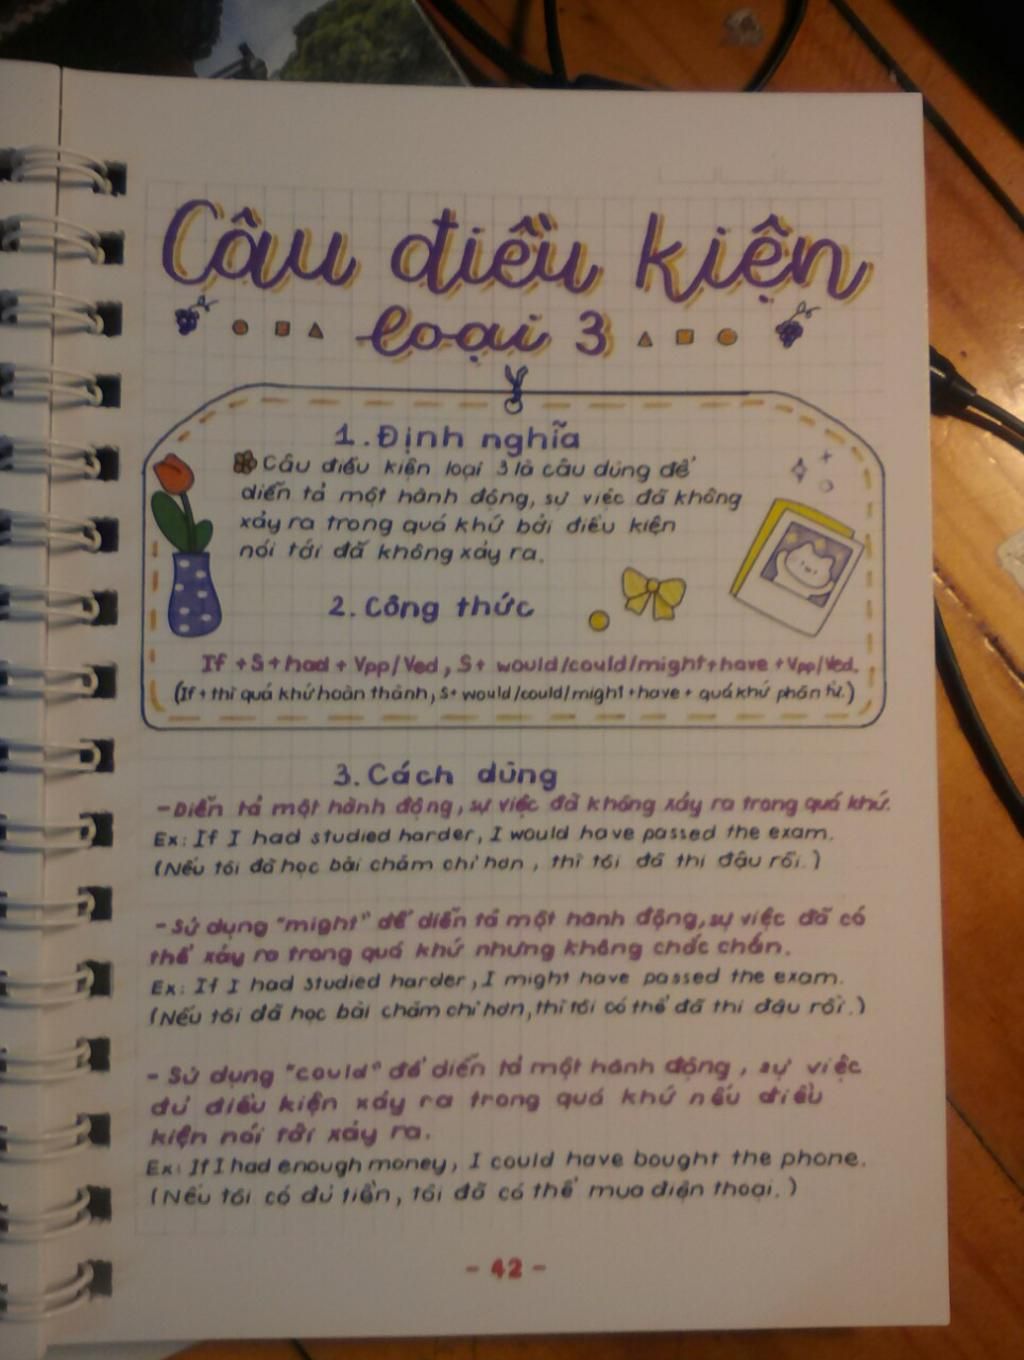 Câu điều kiện
loại 3
1. Định nghĩa
Câu điều kiện loại 3 là câu dùng để
diễn tả một hành động, sự việc đã không
xảy ra trong quá khứ bởi điều kiện
nói tới đã không xảy ra.
2. Công thức
If + S + had + Vpp/Ved, S + would/could/might + have + Vpp/Ved.
(If + thì quá khứ hoàn thành, S + would/could/might + have + quá khứ phân từ.)
3. Cách dùng
- Diễn tả một hành động, sự việc đã không xảy ra trong quá khứ.
Ex: If I had studied harder, I would have passed the exam.
(Nếu tôi đã học bài chăm chỉ hơn, thì tôi đã thi đậu rồi.)
- Sử dụng "might" để diễn tả một hành động, sự việc đã có
thể xảy ra trong quá khứ nhưng không chắc chắn.
Ex: If I had studied harder, I might have passed the exam.
(Nếu tôi đã học bài chăm chỉ hơn, thì tôi có thể đã thi đậu rồi.)
- Sử dụng "could" để diễn tả một hành động, sự việc
đủ điều kiện xảy ra trong quá khứ nếu điều
kiện nói tới xảy ra.
Ex: If I had enough money, I could have bought the phone.
(Nếu tôi có đủ tiền, tôi đã có thể mua điện thoại.)
- 42 -